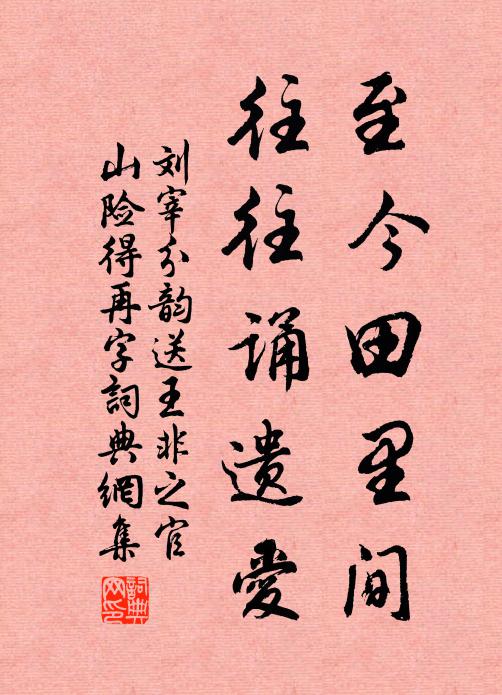 至今田里间
往往诵遗爱
刘宰分韵送王非之官
山险得再字词典網集
詞典
网印